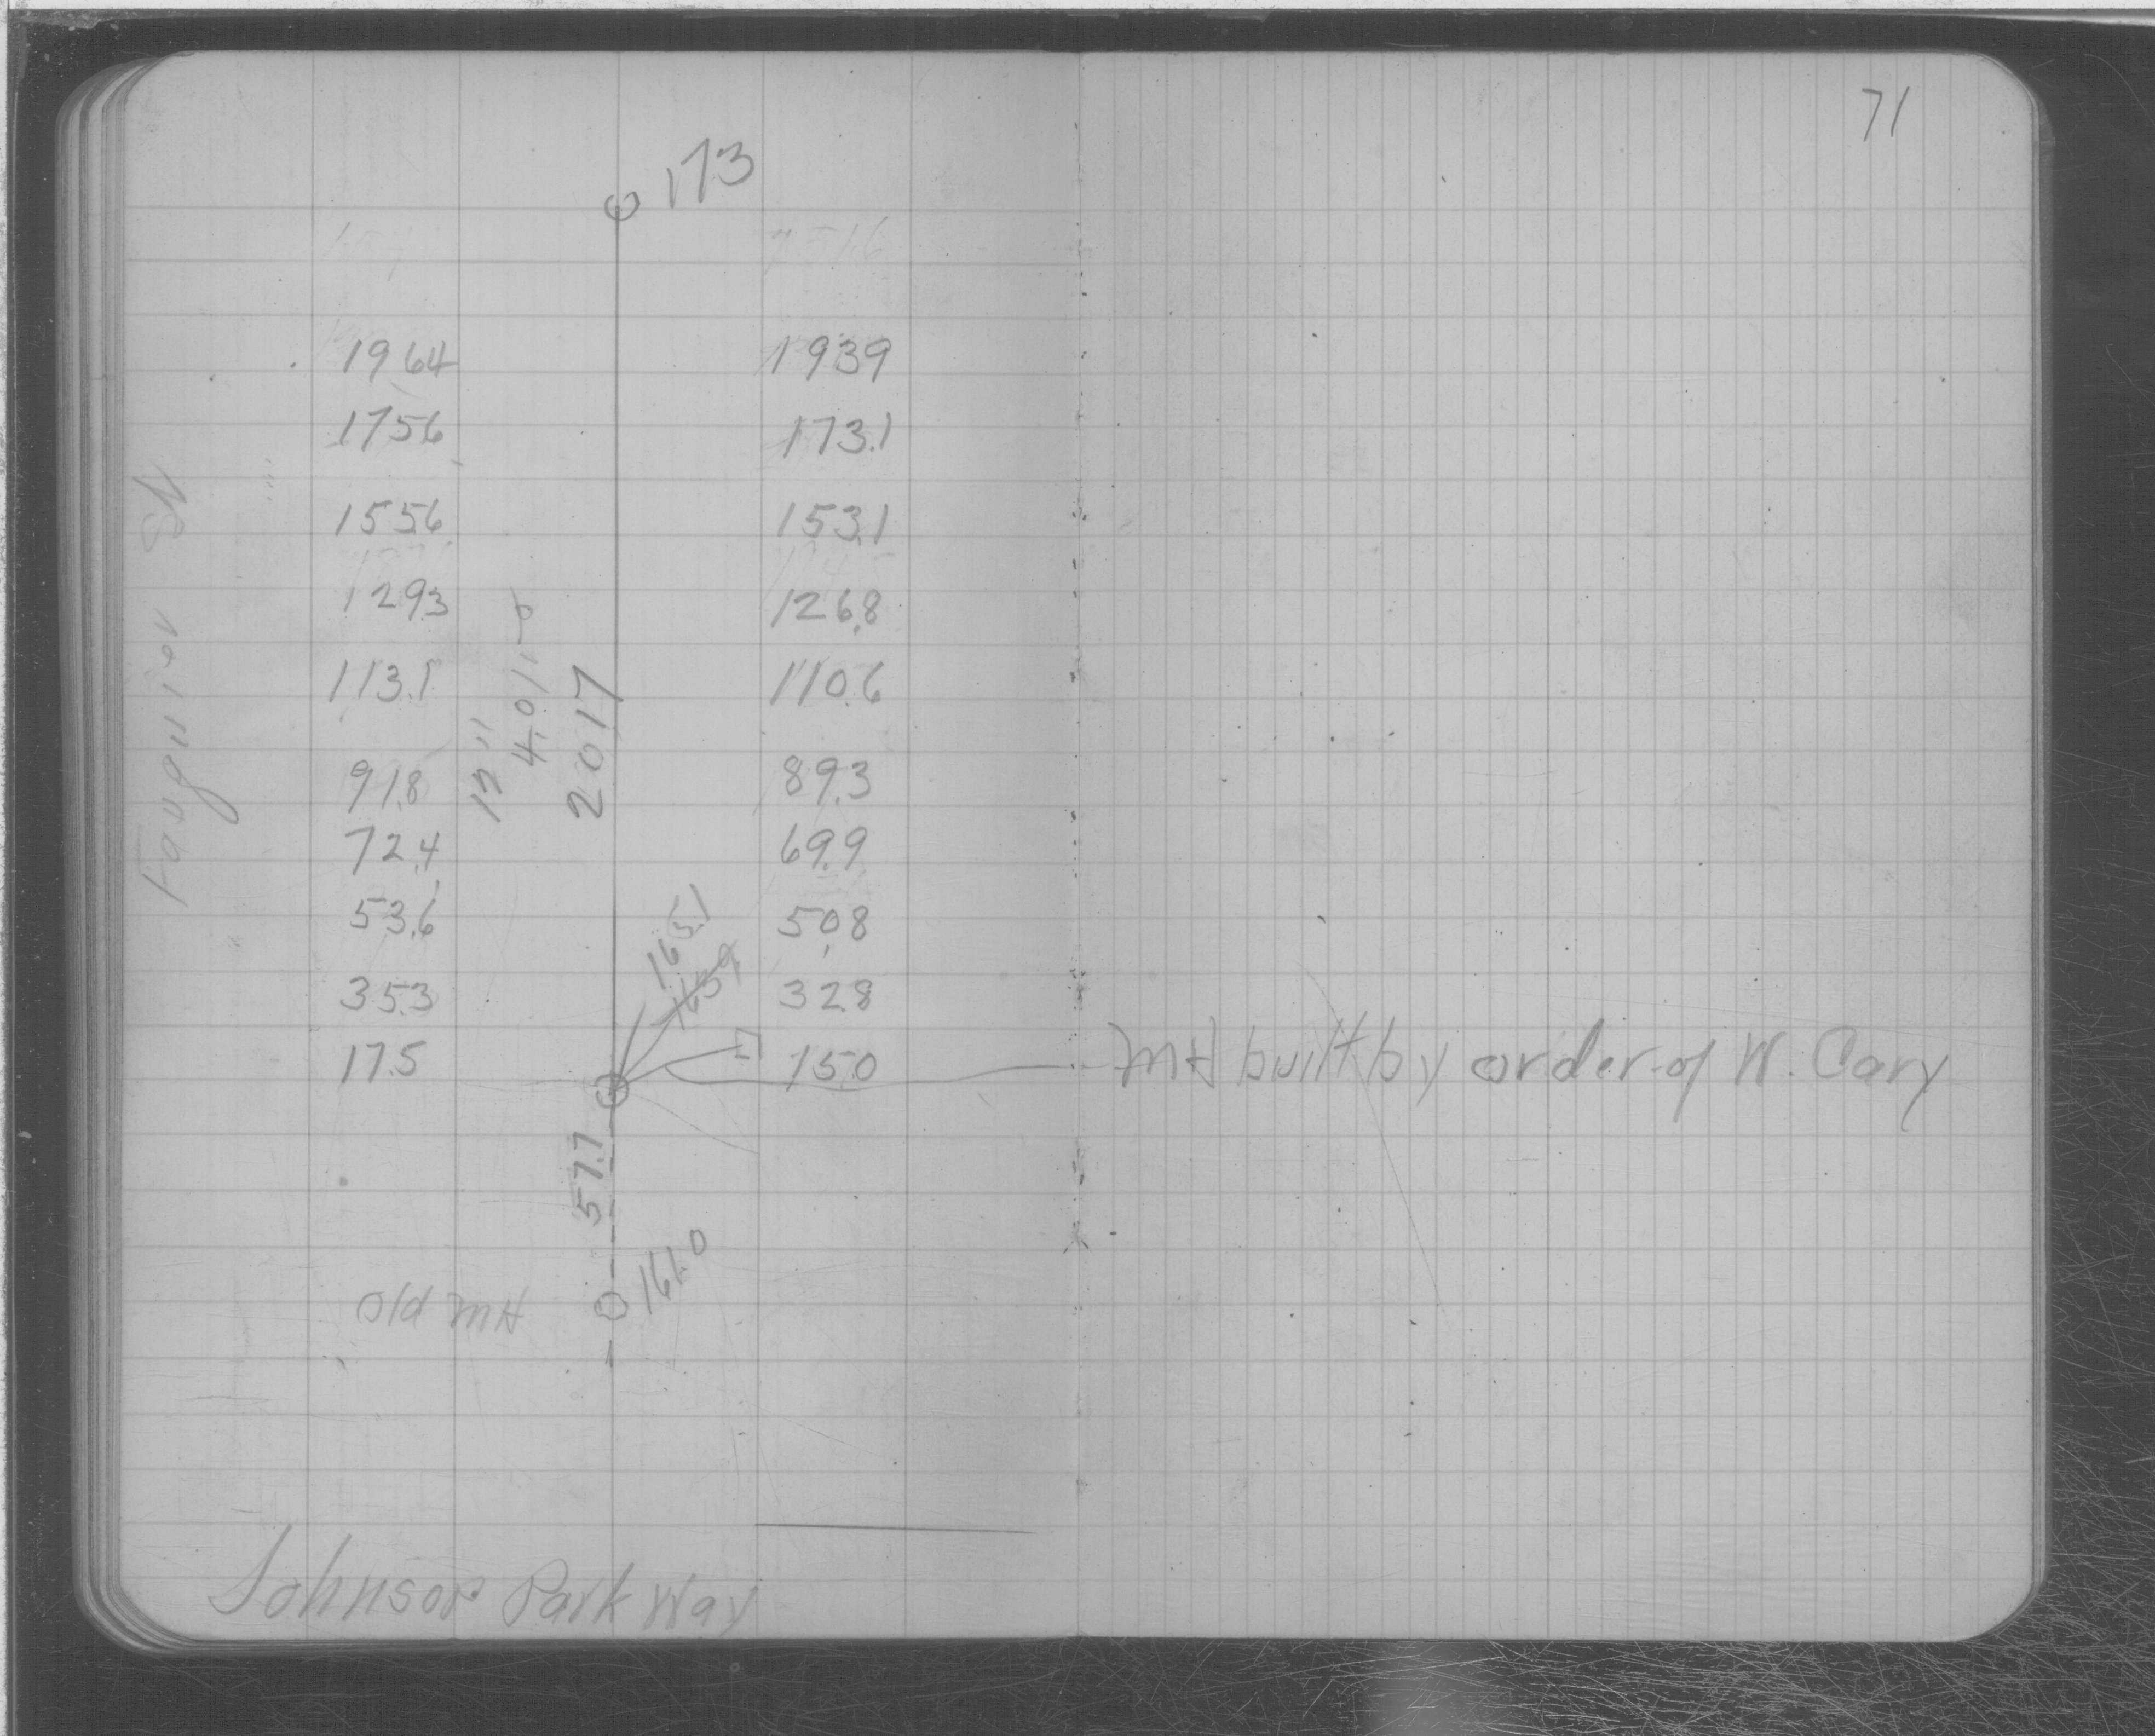 71
173
1964 1939
1756 173.1
1556 153.1
129.3 126.8
113.1 110.6
91.8 89.3
72.4 69.9
53.6 50.8
35.3 32.8
17.5 15.0
Fauquier St
12"
2017
163.1
57.7
161.0
Old MH
MH built by order of W. Cary
Johnson Park Way